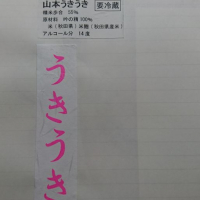 山本うきうき
要冷蔵
精米歩合 55%
原材料 吟の精 100%
米(秋田県)米麹(秋田県産米)
アルコール分 14度
うきうき